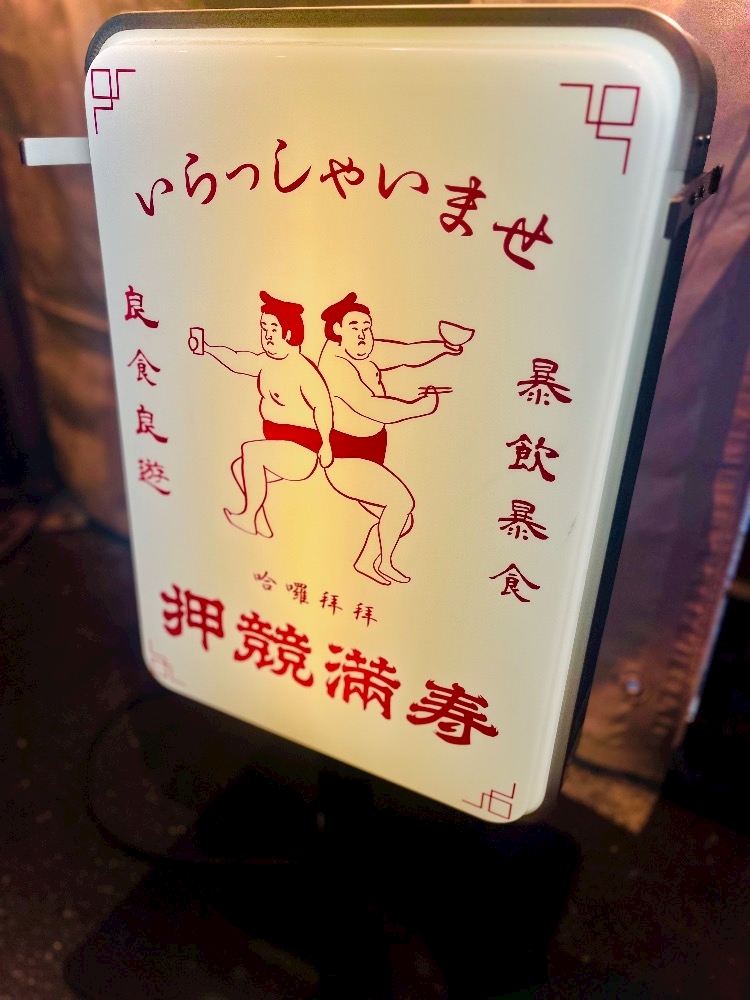 いらっしゃいませ
暴飲暴食
良食良遊
哈囉拜拜
押競満寿